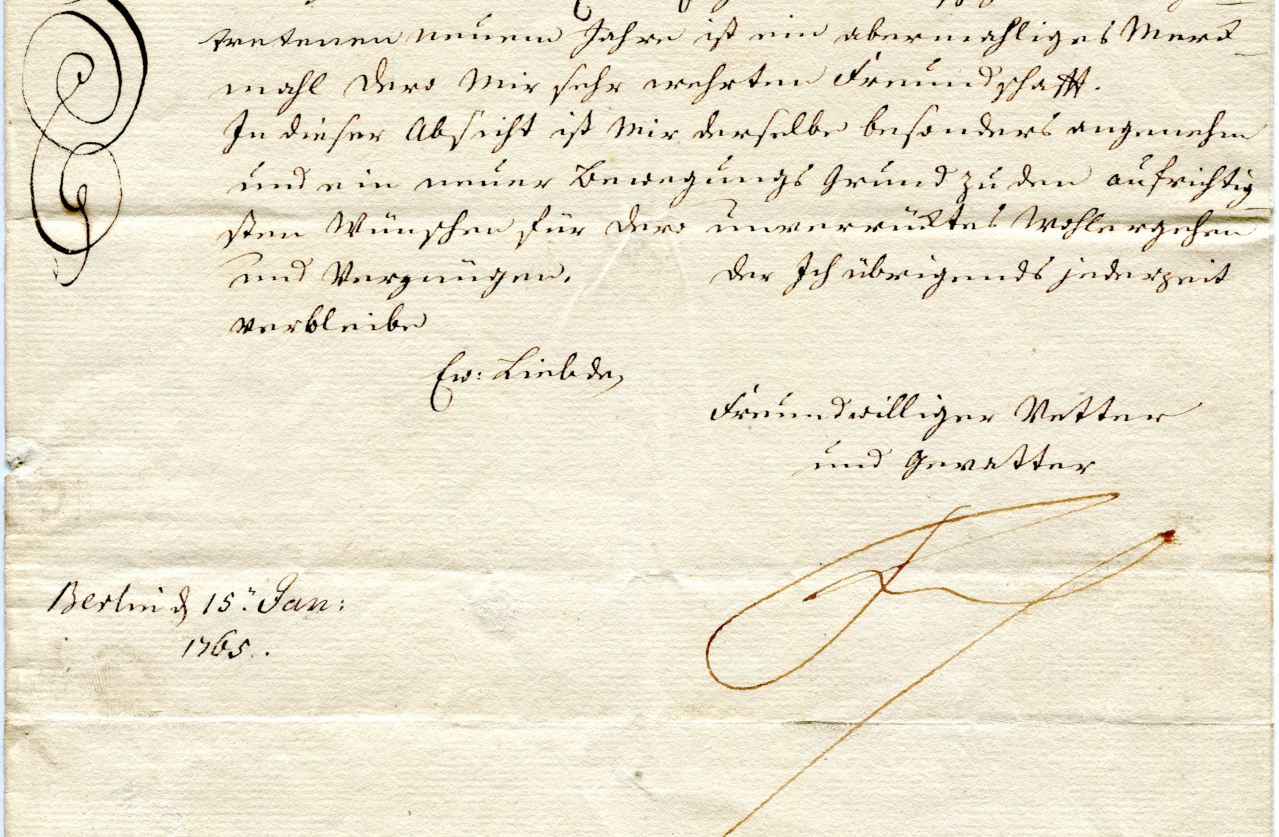 tretenen neuem Jahre ist ein abermahliges Merck-
mahl Dero Mir sehr wehrten Freundschafft.
In dieser Absicht ist Mir derselbe besonders angenehm
und ein neuer Bewegungs Grund zu den aufrichtig-
sten Wünschen für Dero unverrücktes Wohlergehen
und Vergnügen. Der Ich übrigends jederzeit
verbleibe
Ew: Liebden
Freundwilliger Vetter
und Gevatter
Berlin d 15.ⁿ Jan:
1765.